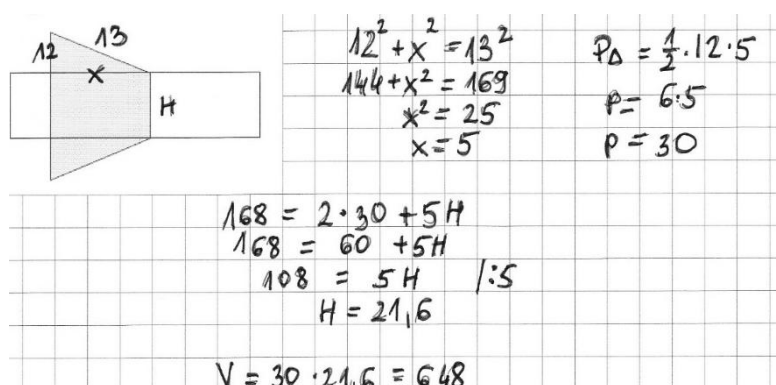 12 13
x
H
12² + x² = 13²
144 + x² = 169
x² = 25
x = 5
P△ = 1/2 · 12 · 5
P = 6 · 5
P = 30
168 = 2 · 30 + 5H
168 = 60 + 5H
108 = 5H /:5
H = 21,6
V = 30 · 21,6 = 648